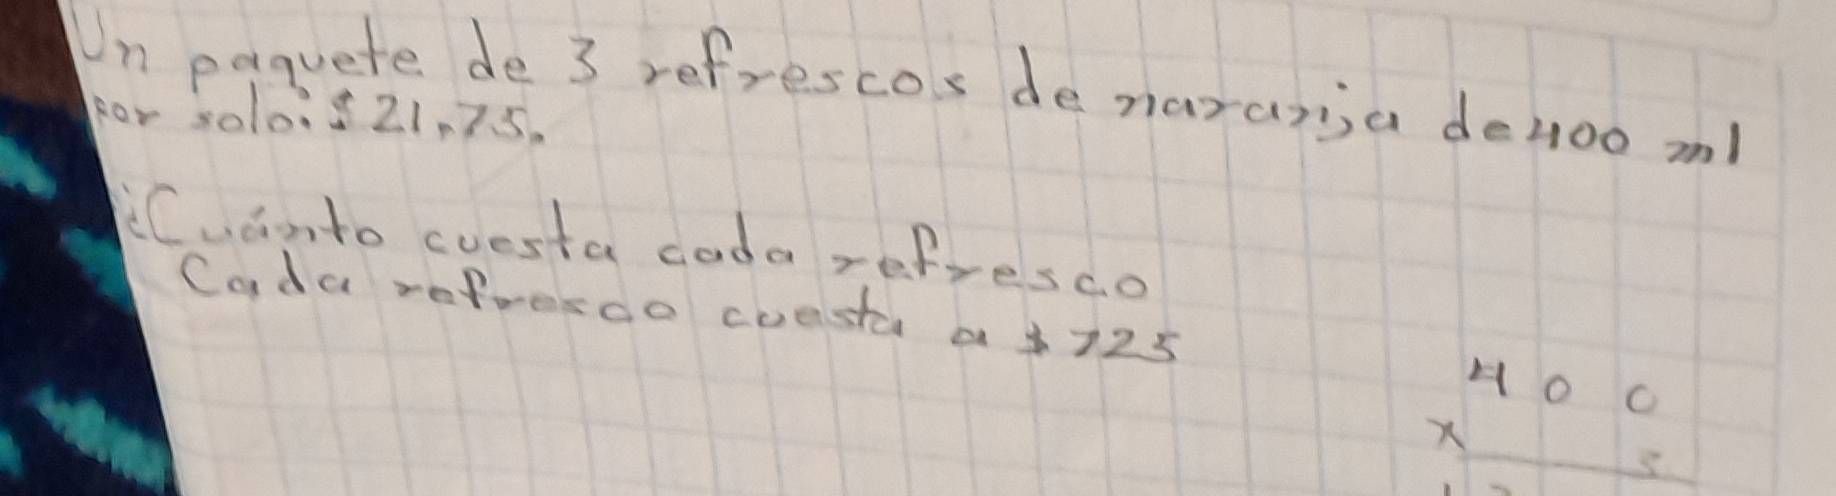 Un paquete de 3 refrescos de naranja de 400 ml
por solo: $21,75.
¿Cuánto cuesta cada refresco
Cada refresco cuesta a $725
400
x